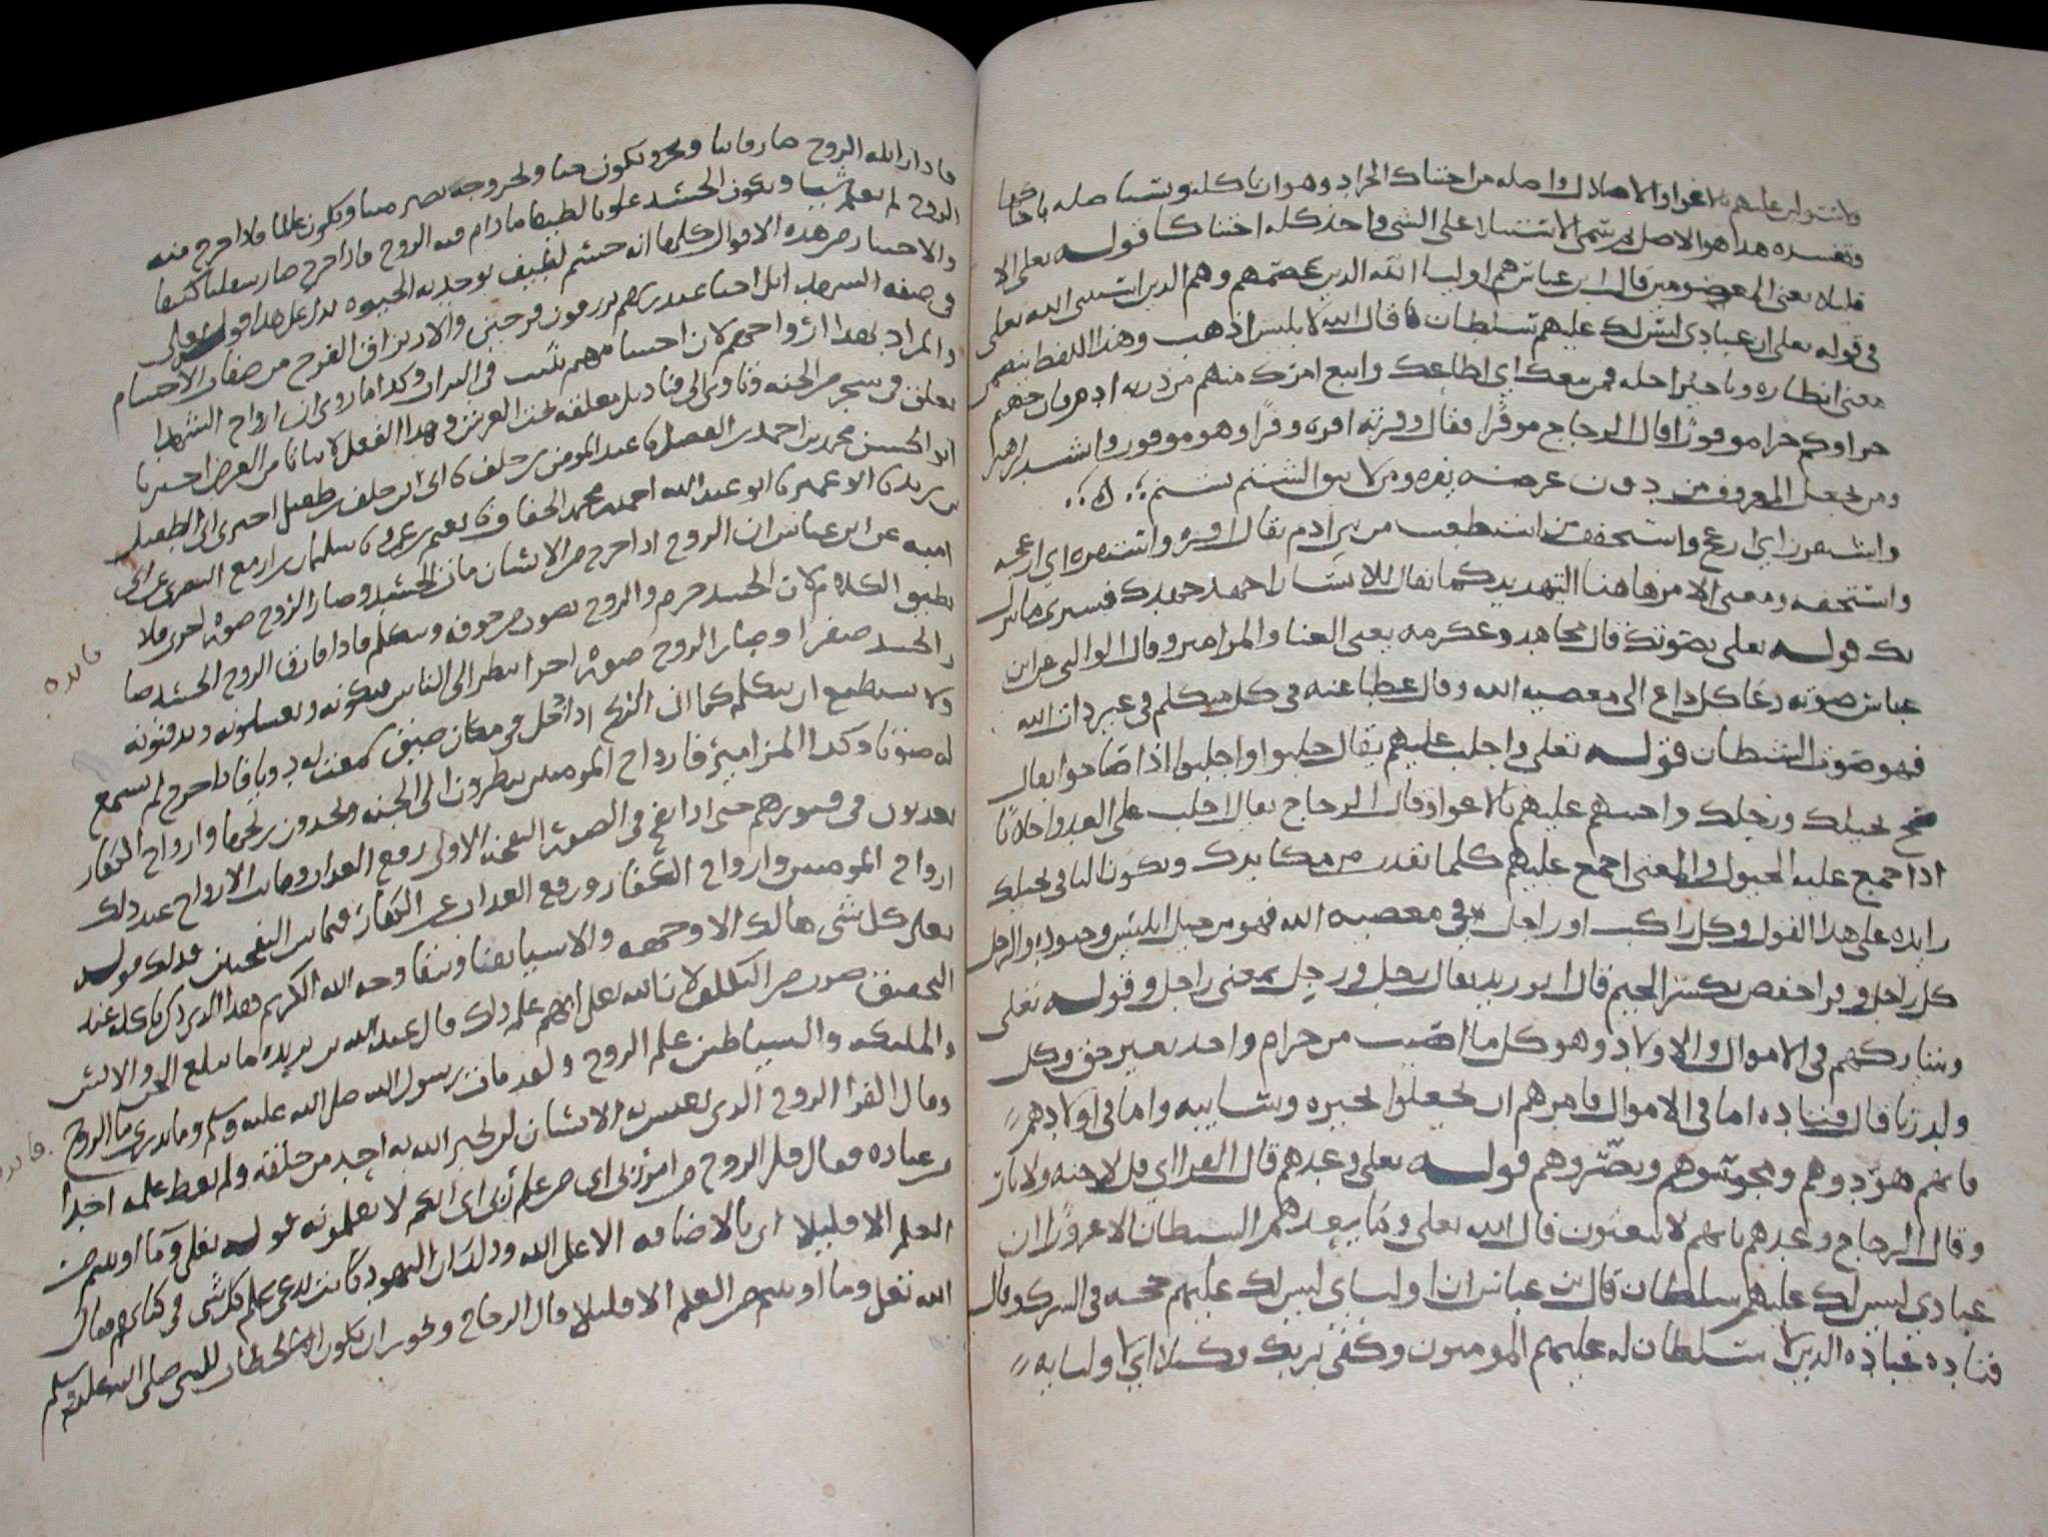 ولاستولين عليهم بالاغوا والاضلال واصله من احتناك الجراد وهو ان تاكله وتستاصله باحناكها
وتفسده هذا هو الاصل ثم سمى الاستيلا على الشي واخذ كله احتناكا قوله تعلى الا
قليلا يعنى المعصومين قال ابن عباس هم اوليا الله الذين عصمهم وهم الذين استثنى الله تعلى
في قوله تعلى ان عبادي ليس لك عليهم سلطان فقال الله لابليس اذهب وهذا اللفظ يتضمن
معنى انظاره وتاخير اجله فمن تبعك اي اطاعك واتبع امرك منهم من ذرية ادم فان جهنم
جزاوكم جزا موفورا قال الزجاج موفرا يقال وفرته افره وفرا وهو موفور وانشد لزهير
ومن يجعل المعروف من دون عرضه يفره ومن لا يتق الشتم يشتم
واستفزز اي ازعج واستخفف من استطعت من بني ادم يقال افزه واستفزه اي ازعجه
واستخفه ومعنى الامر هاهنا التهديد كما يقال للانسان اجهد جهدك فسترى ما ينزل
بك قوله تعلى بصوتك قال مجاهد وعكرمه يعنى الغنا والمزامير وقال الوالبي عن ابن
عباس صوته دعا كل داع الى معصيه الله وقال عطا عنه في كل متكلم في غير ذات الله
فهو صوت الشيطان قوله تعلى واجلب عليهم يقال جلبوا واجلبوا اذا صاحوا يقال
صح بخيلك ورجلك واحثثهم عليهم بالاغوا وقال الزجاج يقال اجلب على العدو اجلابا
اذا جمع عليه الخيول والمعنى اجمع عليهم كلما تقدر من مكايدك وتكون البا في بخيلك
زايده على هذا القول وكل راكب او راجل في معصيه الله فهو من خيل ابليس وجنوده والرجل
كل راجل وقرا حفص بكسر الجيم قال ابو زيد يقال رجل ورجل بمعنى راجل وقوله تعلى
وشاركهم في الاموال والاولاد وهو كل ما اصيب من حرام واخذ بغير حق وكل
ولد زنا قال قتاده اما في الاموال فامرهم ان يجعلوا بحيره وسايبه واما في اولادهم
فانهم هودوهم ومجوسوهم ونصروهم قوله تعلى وعدهم قال الفرا اي قل لا جنه ولا نار
وقال الزجاج وعدهم بانهم لا يبعثون قال الله تعلى وما يعدهم الشيطان الا غرورا ان
عبادي ليس لك عليهم سلطان قال بن عباس ان اوليايي ليس لك عليهم حجه في الشرك وقال
قتاده عباده الذين لا سلطان له عليهم المومنون وكفى بربك وكيلا اي لاوليايه
الروح لم يعلم شيا ويكون الجسد علويا لطيفا ما دام فيه الروح فاذا خرج صار سفليا كثيفا
والاختيار من هذه الاقوال كلها انه جسم لطيف يوجد به الحيوه يدل على هذا قوله تعلى
في صفه الشهدا بل احيا عند ربهم يرزقون فرحين والارتزاق والفرح من صفات الاجسام
والمراد بهذا ارواحهم لان اجسامهم تبلى في التراب وكذا ما روى ان ارواح الشهدا
تعلق في شجر الجنه وتاوى الى قناديل معلقه تحت العرش وهذا الفعل لا يتاتا من العرض اخبرنا
ابو الحسن محمد بن احمد بن الفضل نا عبد المومن بن خلف
ابيه عن ابن عباس ان الروح اذا خرج من الانسان مات الجسد وصار الروح صوره اخرى فلا
يطيق الكلام لان الجسد جرم والروح يصوت من جوفه ويتكلم فاذا فارق الروح الجسد صا
ر الجسد صفرا وصار الروح صوره اخرا ينظر الى الناس يبكونه ويغسلونه ويدفنونه
ولا يستطيع ان يتكلم كما ان الريح اذا دخل في مكان ضيق سمعت له دويا فاذا خرج لم تسمع
له صوتا وكذا المزامير فارواح المومنين ينظرون الى الجنه ويجدون ريحها وارواح الكفار
يعذبون في قبورهم حتى اذا نفخ في الصور النفخه الاولى رفع العذاب وماتت الارواح عند ذلك
ارواح المومنين وارواح الكفار ورفع العذاب عن الكفار فيما بين النفختين فذلك قوله
تعلى كل شى هالك الا وجهه والاشيا تفنا ويبقا وجه الله الكريم
والملكه والشياطين علم الروح ولقد مات رسول الله صلى الله عليه وسلم وما يدرى ما الروح
وقال الفرا الروح الذي يعيش به الانسان لم يخبر الله به احد من خلقه ولم يعط علمه احدا
من عباده فقال قل الروح من امر ربى اى من علم ربى اى انكم لا تعلمونه قوله تعلى وما اوتيتم من
العلم الا قليلا اى بالاضافه الا علم الله وذلك ان اليهود كانت تدعى علم كل شى في كتابهم فقال
الله تعلى وما اوتيتم من العلم الا قليلا قال الزجاج ويجوز ان يكون الخطاب للنبى صلى الله عليه وسلم
فايده
فايده